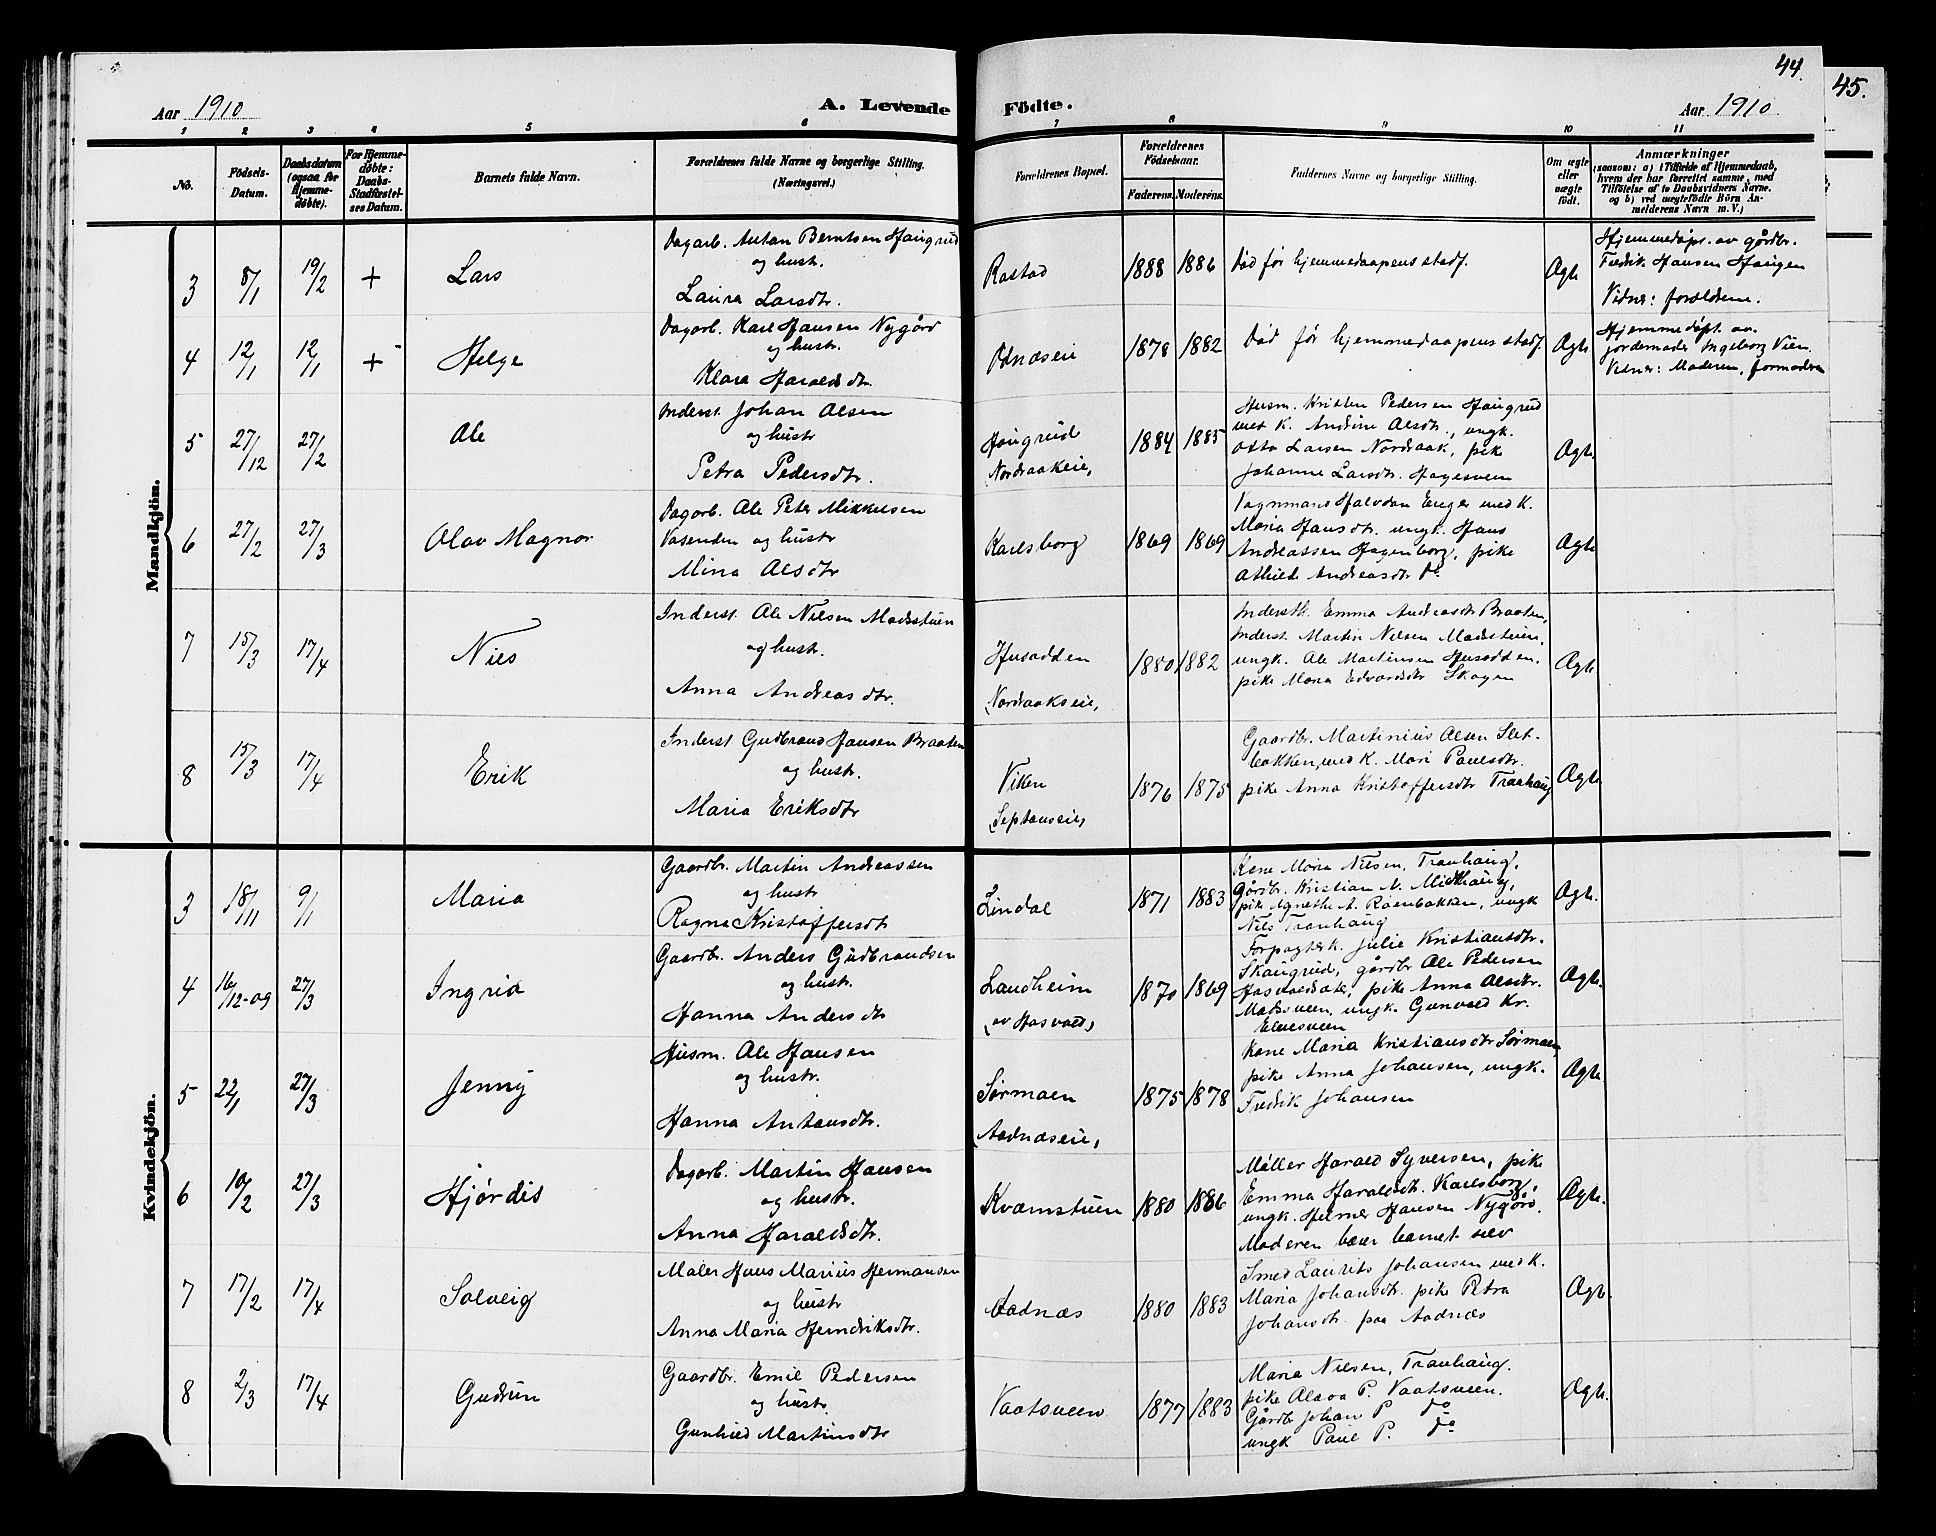 44.
45.
Aar 1910
A. Levende
Födte.
Aar 1910
1 2 3 4 5 6 7 8 9 10 11
No.
Födsels-
Datum.
Daabsdatum
(ogsaa for
Hjemme-
döbte).
For Hjemme-
döbte:
Daabs-
Stadfæstel-
ses Datum.
Barnets fulde Navn.
Forældrenes fulde Navne og borgerlige Stilling.
(Næringsvei.)
Forældrenes Bopæl.
Forældrenes
Födselsaar.
Faderens. Moderens.
Faddernes Navne og borgerlige Stilling.
Om ægte
eller
uægte
födt.
Anmærkninger
(saasom: a) i Tilfælde af Hjemmedaab,
hvem der har forrettet samme, med
Tilföielse af to Daabsvidners Navne.
og b) ved uægtefödte Börn An-
melderens Navn m. V.)
Mandkjön.
3 8/1 19/2 + Lars
Dagarb. Anton Berntsen Haugrud
og hust.
Laura Larsdtr.
Rastad 1888 1886
Død før hjemmedaapens stadf.
Ægte
Hjemmedøpt. av gårdbr.
Fredrik Hansen Haugen
Vidner: forældrene.
4 12/1 12/1 + Helge
Dagarb. Karl Hansen Nygård
og hustr.
Klara Haraldsdtr.
Odnæseie 1878 1882
Død før hjemmedaapens stadf.
Ægte
Hjemmedøpt. av.
jordemoder Ingeborg Vien.
Vidner: Moderen, formoderen
5 27/12 27/2 Ole
Inderst. Johan Olsen
og hustr
Petra Pedersdtr.
Haugrud
Nordraakeie, 1884 1885
Husm. Kristen Pedersen Haugrud
med K. Andine Olsdtr., ungk.
Otto Larsen Nordraak, pike
Johanne Larsdtr. Hagesveen
Ægte
6 27/2 27/3 Olav Magnor
Dagarb. Ole Peter Mikkelsen
Vasenden og hustr
Mina Olsdtr
Karlsborg 1869 1869
Vognmand Halvdan Enger med K.
Maria Hansdtr. ungk. Hans
Andreassen Hagenborg, pike
Othilde Andreasdtr do
Ægte
7 15/3 17/4 Nils
Inderst. Ole Nielsen Madsstuen
og hustr.
Anna Andreasdtr.
Husodden
Nordraakseie, 1880 1882
Inderstk. Emma Andreasdtr Braaten,
Inderst. Martin Nielsen Madsstuen.
ungk. Ole Martinsen Husodden.
pike Maria Edvardsdtr Skogen
Ægte
8 15/3 17/4 Erik
Inderst Gudbrand Hansen Braaten
og hustr.
Maria Eriksdtr
Viken
Septonseie, 1876 1875
Gaardbr. Martinius Olsen Slet-
bakken, med K. Mari Paulsdtr.
pike Anna Kristoffersdtr Tranhaug
Ægte
Kvindekjön.
3 18/11 9/1 Maria
Gaardbr. Martin Andreassen
og hustr
Ragna Kristoffersdtr
Lindal 1871 1883
Kone Maria Nilsen, Tranhaug,
gårdbr. Kristian N. Midthaug,
pike Agnethe A. Roenbakken, ungk
Nils Tranhaug
Ægte.
4 16/12-09 27/3 Ingrid
Gaardbr. Anders Gudbrandsen
og hustr.
Hanna Andersdtr
Landheim
(av Hasvold) 1870 1869
Forpagterk. Julie Kristiansdtr.
Skaugrud, gårdbr Ole Pedersen
pike Anna Olsdtr.
Madsveen, ungk. Gunvald Kr.
Elvesveen
Ægte.
5 22/1 27/3 Jenny
Husm. Ole Hansen
og hustr.
Hanna Antonsdtr.
Sørmoen
(Aadnæseie, 1875 1878
Kone Maria Kristiansdtr Sørmoen
pike Anna Johansen, ungk.
Fredrik Johansen
Ægte.
6 10/2 27/3 Hjördis
Dagarb. Martin Hansen
og hustr.
Anna Haraldsdtr.
Kvæmstuen 1880 1886
Møller Harald Syversen, pike
Emma Haraldsdtr. Karlsborg,
ungk. Helmer Hansen Nygård.
Moderen bærer barnet selv
Ægte.
7 17/2 17/4 Solveig
Maler Hans Marius Hermansen
og hustr
Anna Maria Hendriksdtr.
Aadnæs 1880 1883
Smed Laurits Johansen med K.
Maria Johansdtr. pike Petra
Johansdtr. paa Aadnæs
Ægte.
8 2/3 17/4 Gudrun
Gaardbr. Emil Pedersen
og hustr.
Gunhild Martinsdtr
Vaatsveen 1877 1883
Maria Nielsen, Tranhaug.
pike Olava P. Vaatsveen.
Gårdbr Johan P. do
ungk Paul P. do
Ægte.